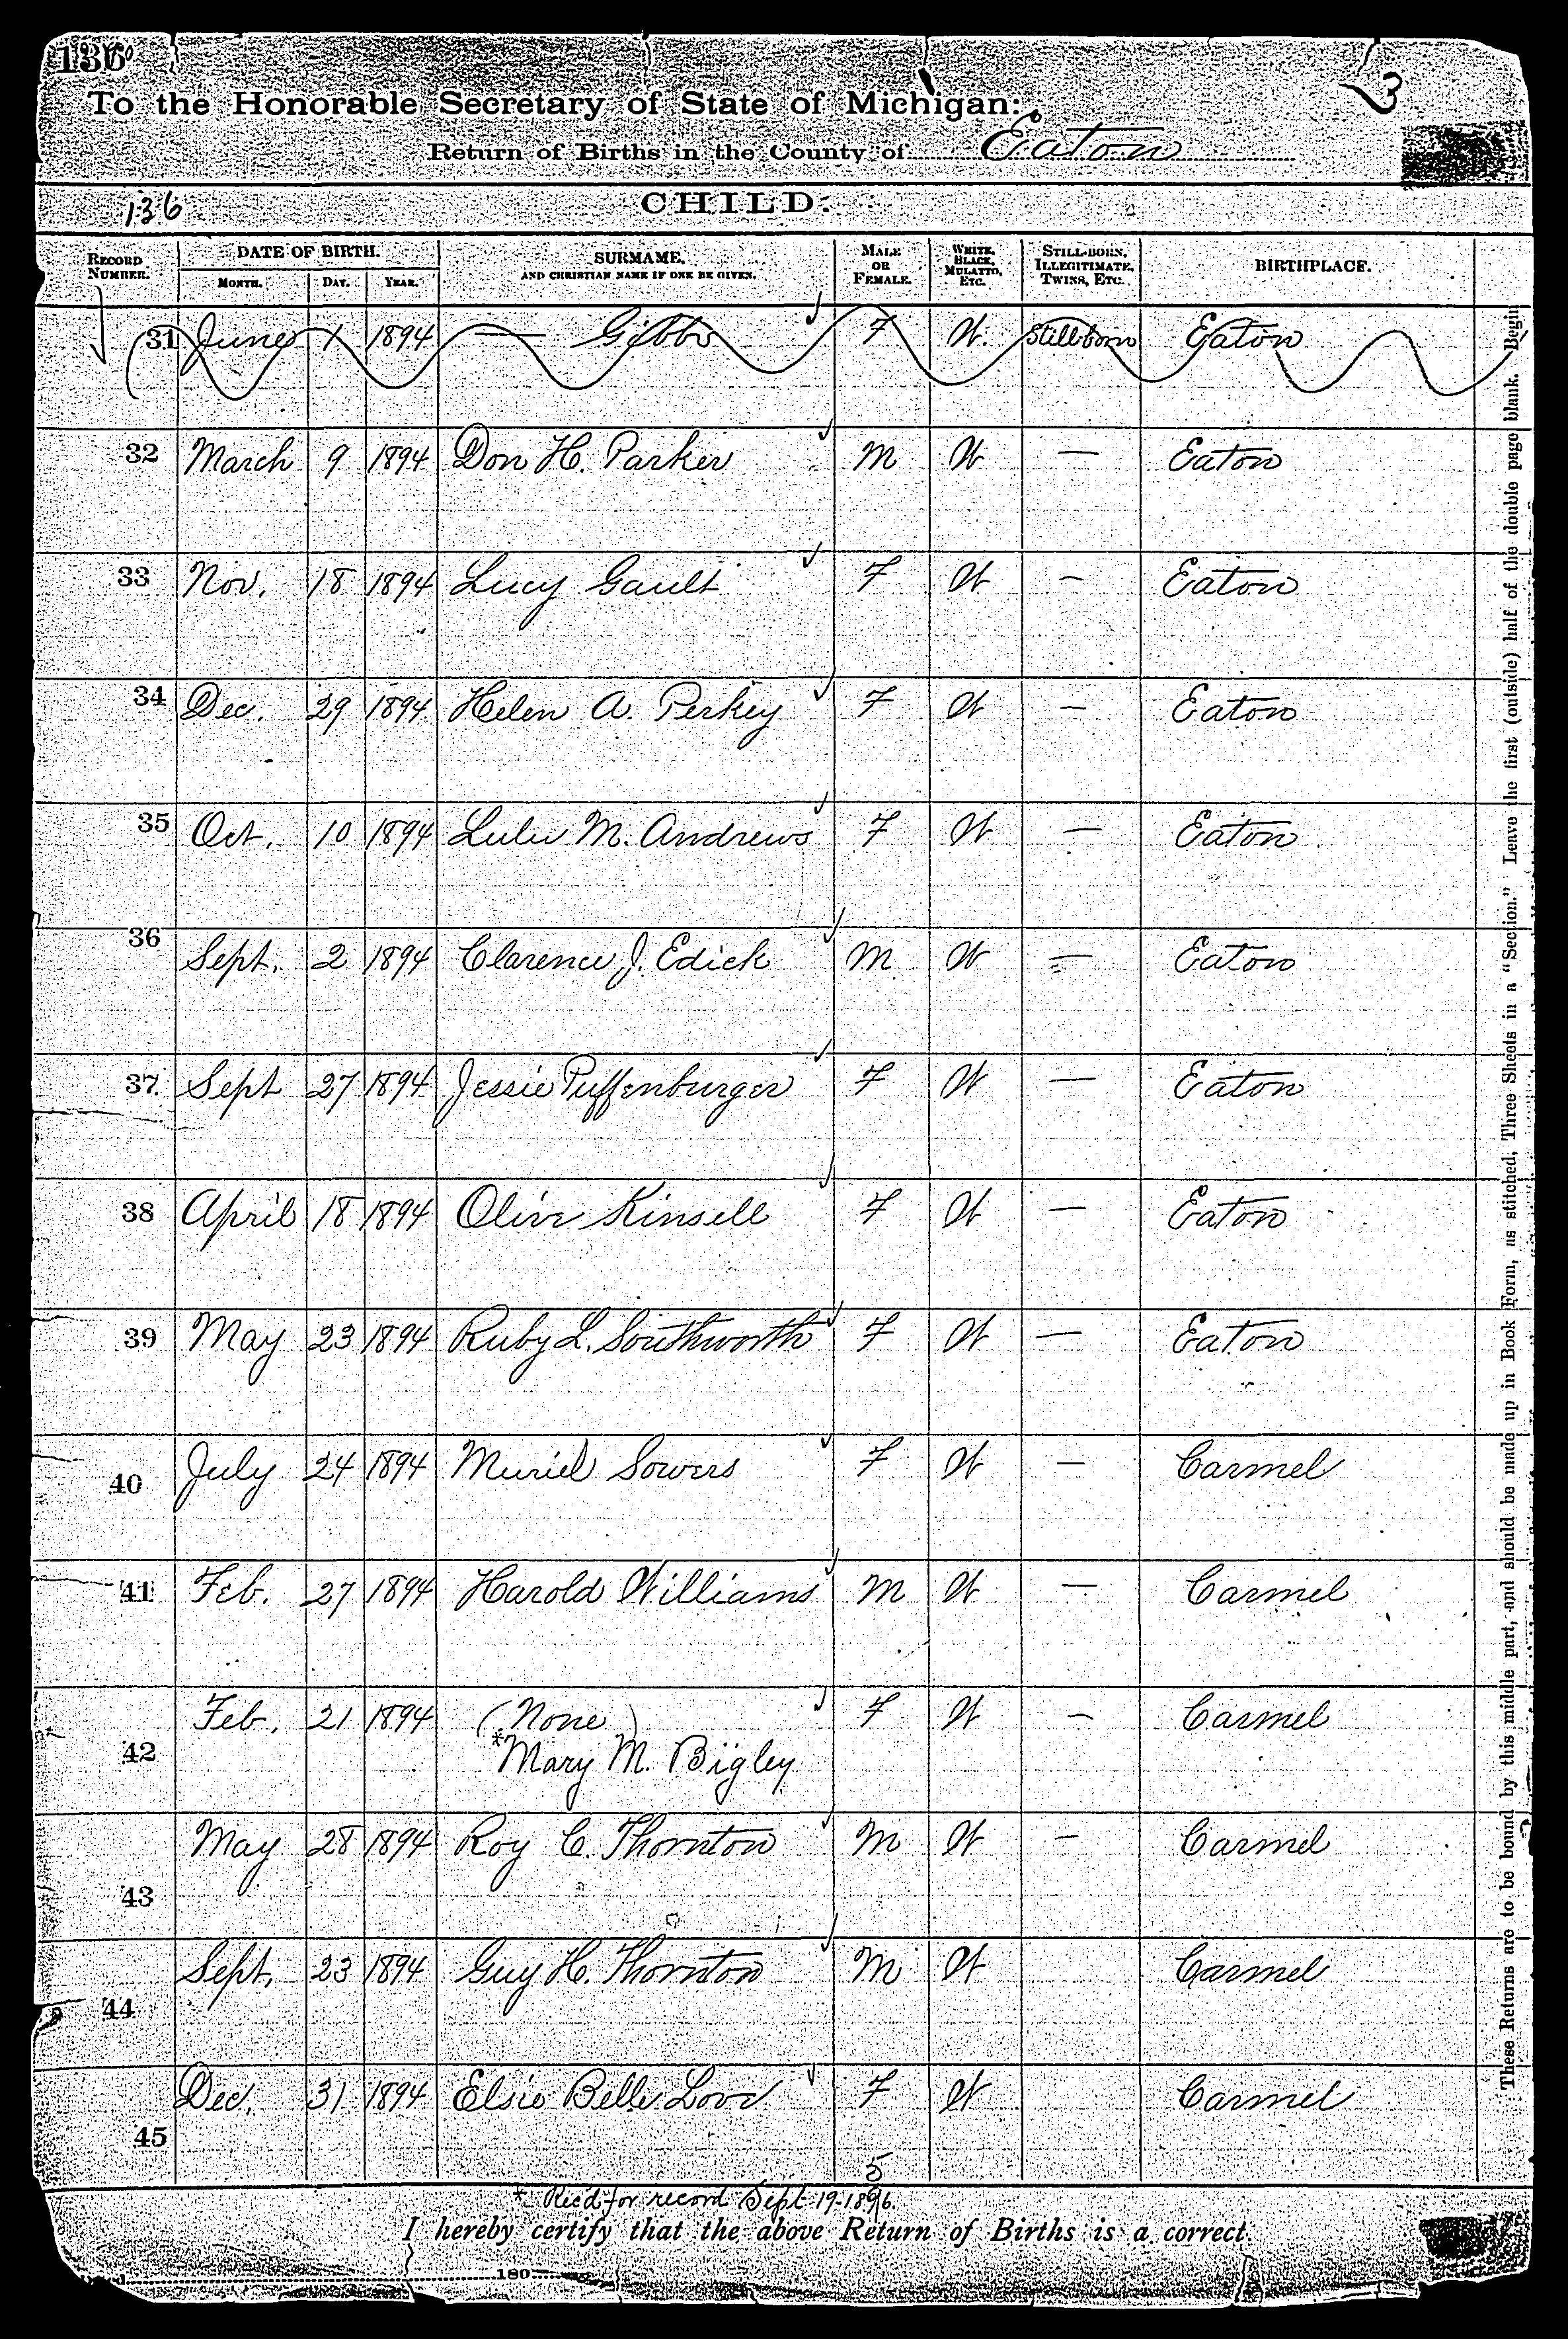 136
3
To the Honorable Secretary of State of Michigan:
Return of Births in the County of Eaton
136
CHILD.
RECORD NUMBER. DATE OF BIRTH. MONTH. DAY. YEAR. SURMAME. AND CHRISTIAN NAME IF ONE BE GIVEN. MALE OR FEMALE. WHITE, BLACK, MULATTO, ETC. STILL-BORN, ILLEGITIMATE, TWINS, ETC. BIRTHPLACE.
31 June 1 1894 — Gibbs F W. Stillborn Eaton
32 March 9 1894 Don H. Parker M W — Eaton
33 Nov. 18 1894 Lucy Gault F W — Eaton
34 Dec. 29 1894 Helen A. Perkey F W — Eaton
35 Oct. 10 1894 Lulu M. Andrews F W — Eaton
36 Sept. 2 1894 Clarence J. Edick M W — Eaton
37 Sept 27 1894 Jessie Puffenburger F W — Eaton
38 April 18 1894 Olive Kinsell F W — Eaton
39 May 23 1894 Ruby L. Southworth F W — Eaton
40 July 24 1894 Muriel Sowers F W — Carmel
41 Feb. 27 1894 Harold Williams M W — Carmel
42 Feb. 21 1894 (None) F W — Carmel
*Mary M. Bigley
43 May 28 1894 Roy C. Thornton M W — Carmel
44 Sept. 23 1894 Guy H. Thornton M W Carmel
45 Dec. 31 1894 Elsie Belle Love F W Carmel
5
* Rec'd for record Sept 19-1896.
I hereby certify that the above Return of Births is a correct
180
These Returns are to be bound by this middle part, and should be made up in Book Form, as stitched, Three Sheets in a "Section." Leave the first (outside) half of the double page blank. Begin